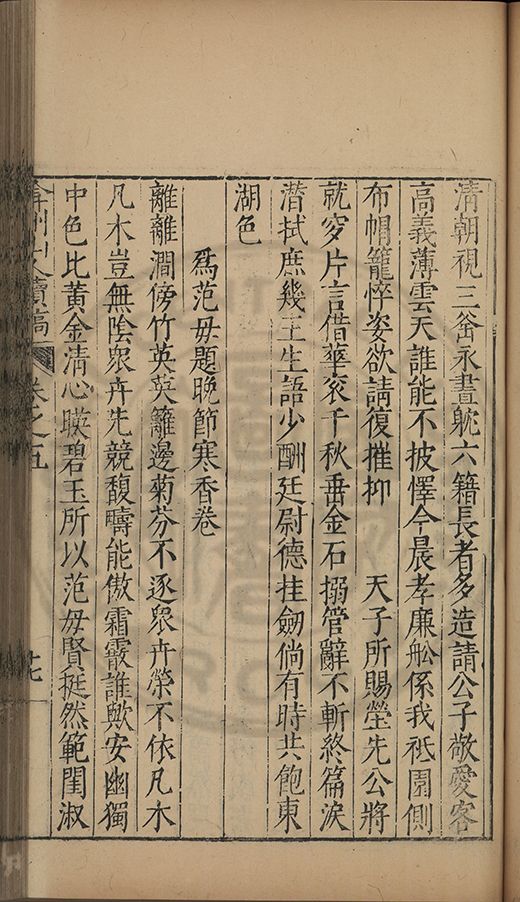 清朝視三釜永晝躭六籍長者多造請公子敬愛客
高義薄雲天誰能不披懌今晨孝廉舩係我祗園側
布帽籠悴姿欲請復摧抑 天子所賜塋先公將
就穸片言借華衮千秋垂金石搦管辭不斬終篇淚
潸拭庶幾王生語少酬廷尉德挂劒倘有時共飽東
湖色
爲范母題晩節寒香卷
離離澗傍竹英英籬邊菊芬不逐衆卉榮不依凡木
凡木豈無陰衆卉先競馥疇能傲霜霰誰歟安幽獨
中色比黃金清心暎碧玉所以范母賢挺然範閨淑
弇州山人續稿 卷之五